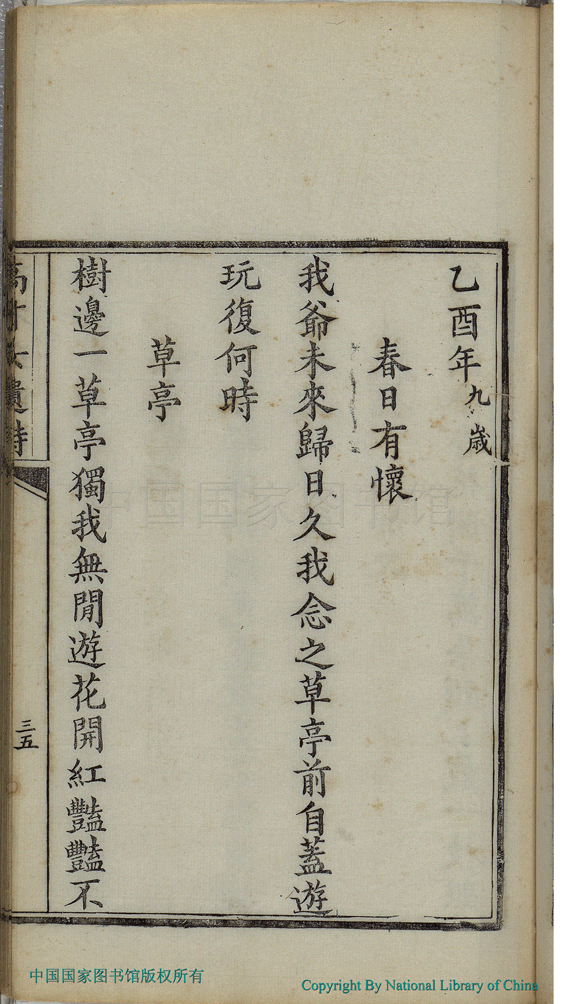 乙酉年九歲
春日有懷
我爺未來歸日久我念之草亭前自蓋遊
玩復何時
草亭
樹邊一草亭獨我無閒遊花開紅豔豔不
遺詩
三五
中国国家图书馆
中国国家图书馆版权所有
Copyright By National Library of China